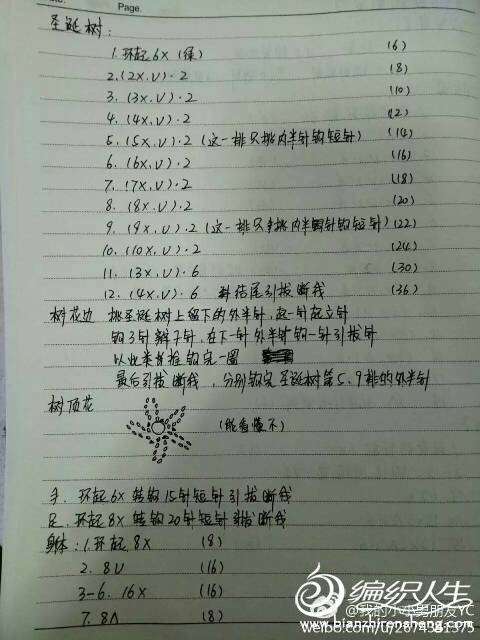 Page.
圣诞树:
1. 环起6X (绿) (6)
2. (2X, V)·2 (8)
3. (3X, V)·2 (10)
4. (4X, V)·2 (12)
5. (5X, V)·2 (这一排只挑内半针钩短针) (14)
6. (6X, V)·2 (16)
7. (7X, V)·2 (18)
8. (8X, V)·2 (20)
9. (9X, V)·2 (这一排只挑内半针钩短针) (22)
10. (10X, V)·2 (24)
11. (3X, V)·6 (30)
12. (4X, V)·6 结尾引拔断线 (36)
树花边 挑圣诞树上留下的外半针,起一针起立针
钩3针辫子针,在下一针外半针钩一针引拔针
以此类推钩完一圈
最后引拔断线,分别钩完圣诞树第5、9排的外半针
树顶花
(能看懂不)
手. 环起6X 转钩15针短针引拔断线
足. 环起8X 转钩20针短针引拔断线
身体: 1. 环起8X (8)
2. 8V (16)
3-6. 16X (16)
7. 8Λ (8)
编织人生
@我的小小男朋友YC
weibo.com/u/2674381375
bianzhirensheng.com